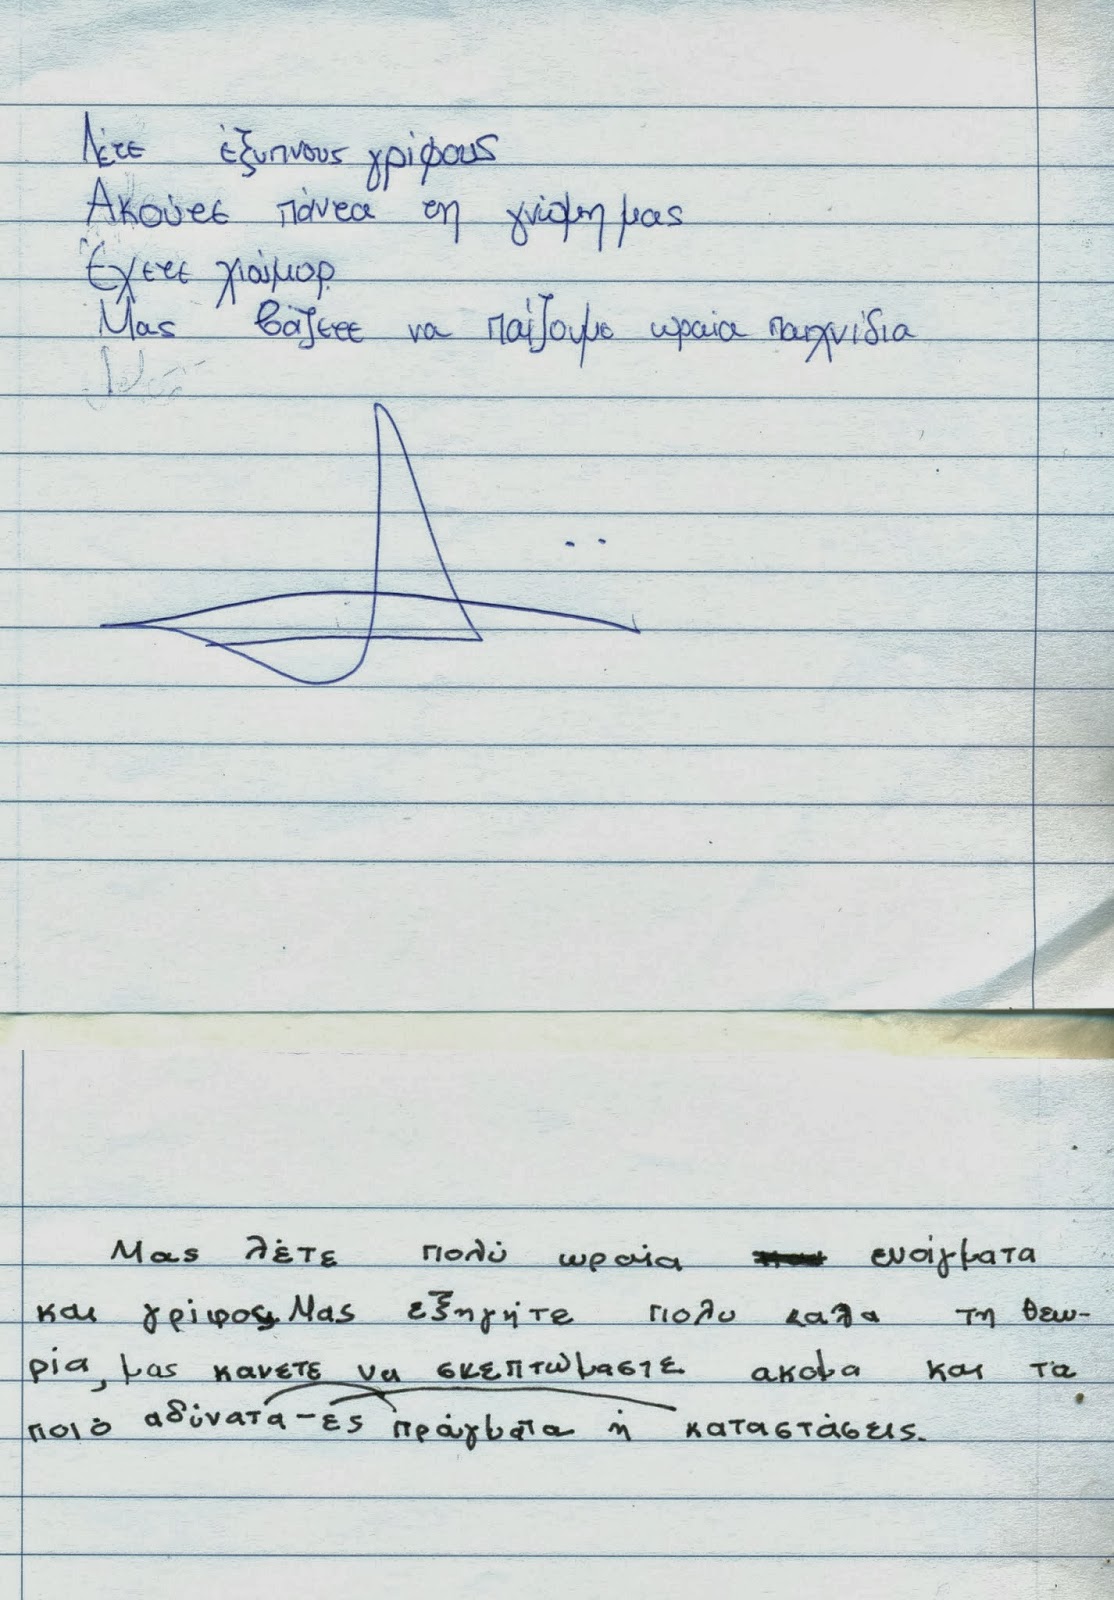 Λέτε έξυπνους γρίφους
Ακούτε πάντα τη γνώμη μας
Έχετε χιούμορ
Μας βάζετε να παίζουμε ωραία παιχνίδια
Μας λέτε πολύ ωραία ενοίγματα
και γρίφος. Μας εξηγήτε πολυ καλα τη θεω-
ρία, μας κανετε να σκεπτώμαστε ακομα και τα
ποιό αδύνατα-ες πράγματα ή καταστάσεις.